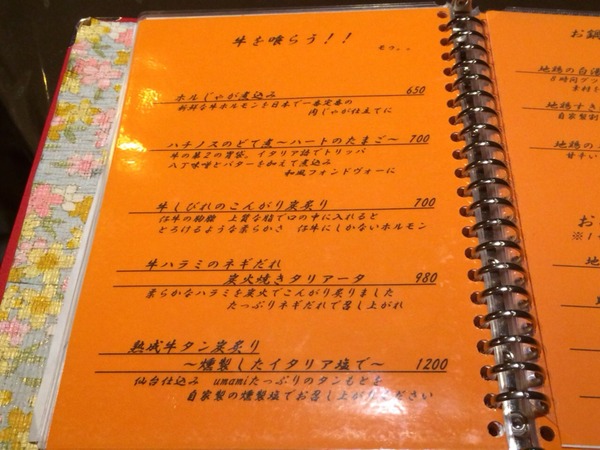 牛を喰らう!!
モウ。。
ホルじゃが煮込み 650
新鮮な牛ホルモンを日本で一番定番の
肉じゃが仕立てに
ハチノスのどて煮~ハートのたまご~ 700
牛の第2の胃袋。イタリア語でトリッパ
八丁味噌とバターを加えて煮込み
和風フォンドヴォーに
牛しびれのこんがり炭炙り 700
仔牛の胸腺 上質な脂で口の中に入れると
とろけるような柔らかさ 仔牛にしかないホルモン
牛ハラミのネギだれ
炭火焼きタリアータ 980
柔らかなハラミを炭火でこんがり炙りました
たっぷりネギだれで召し上がれ
熟成牛タン炭炙り
~燻製したイタリア塩で~ 1200
仙台仕込み umamiたっぷりのタンもとを
自家製の燻製塩でお召し上がりください
お鍋
地鶏の白湯
8時間グツ
水材を
地鶏すき
自家製割
地鶏の
甘辛い
お
※1
地